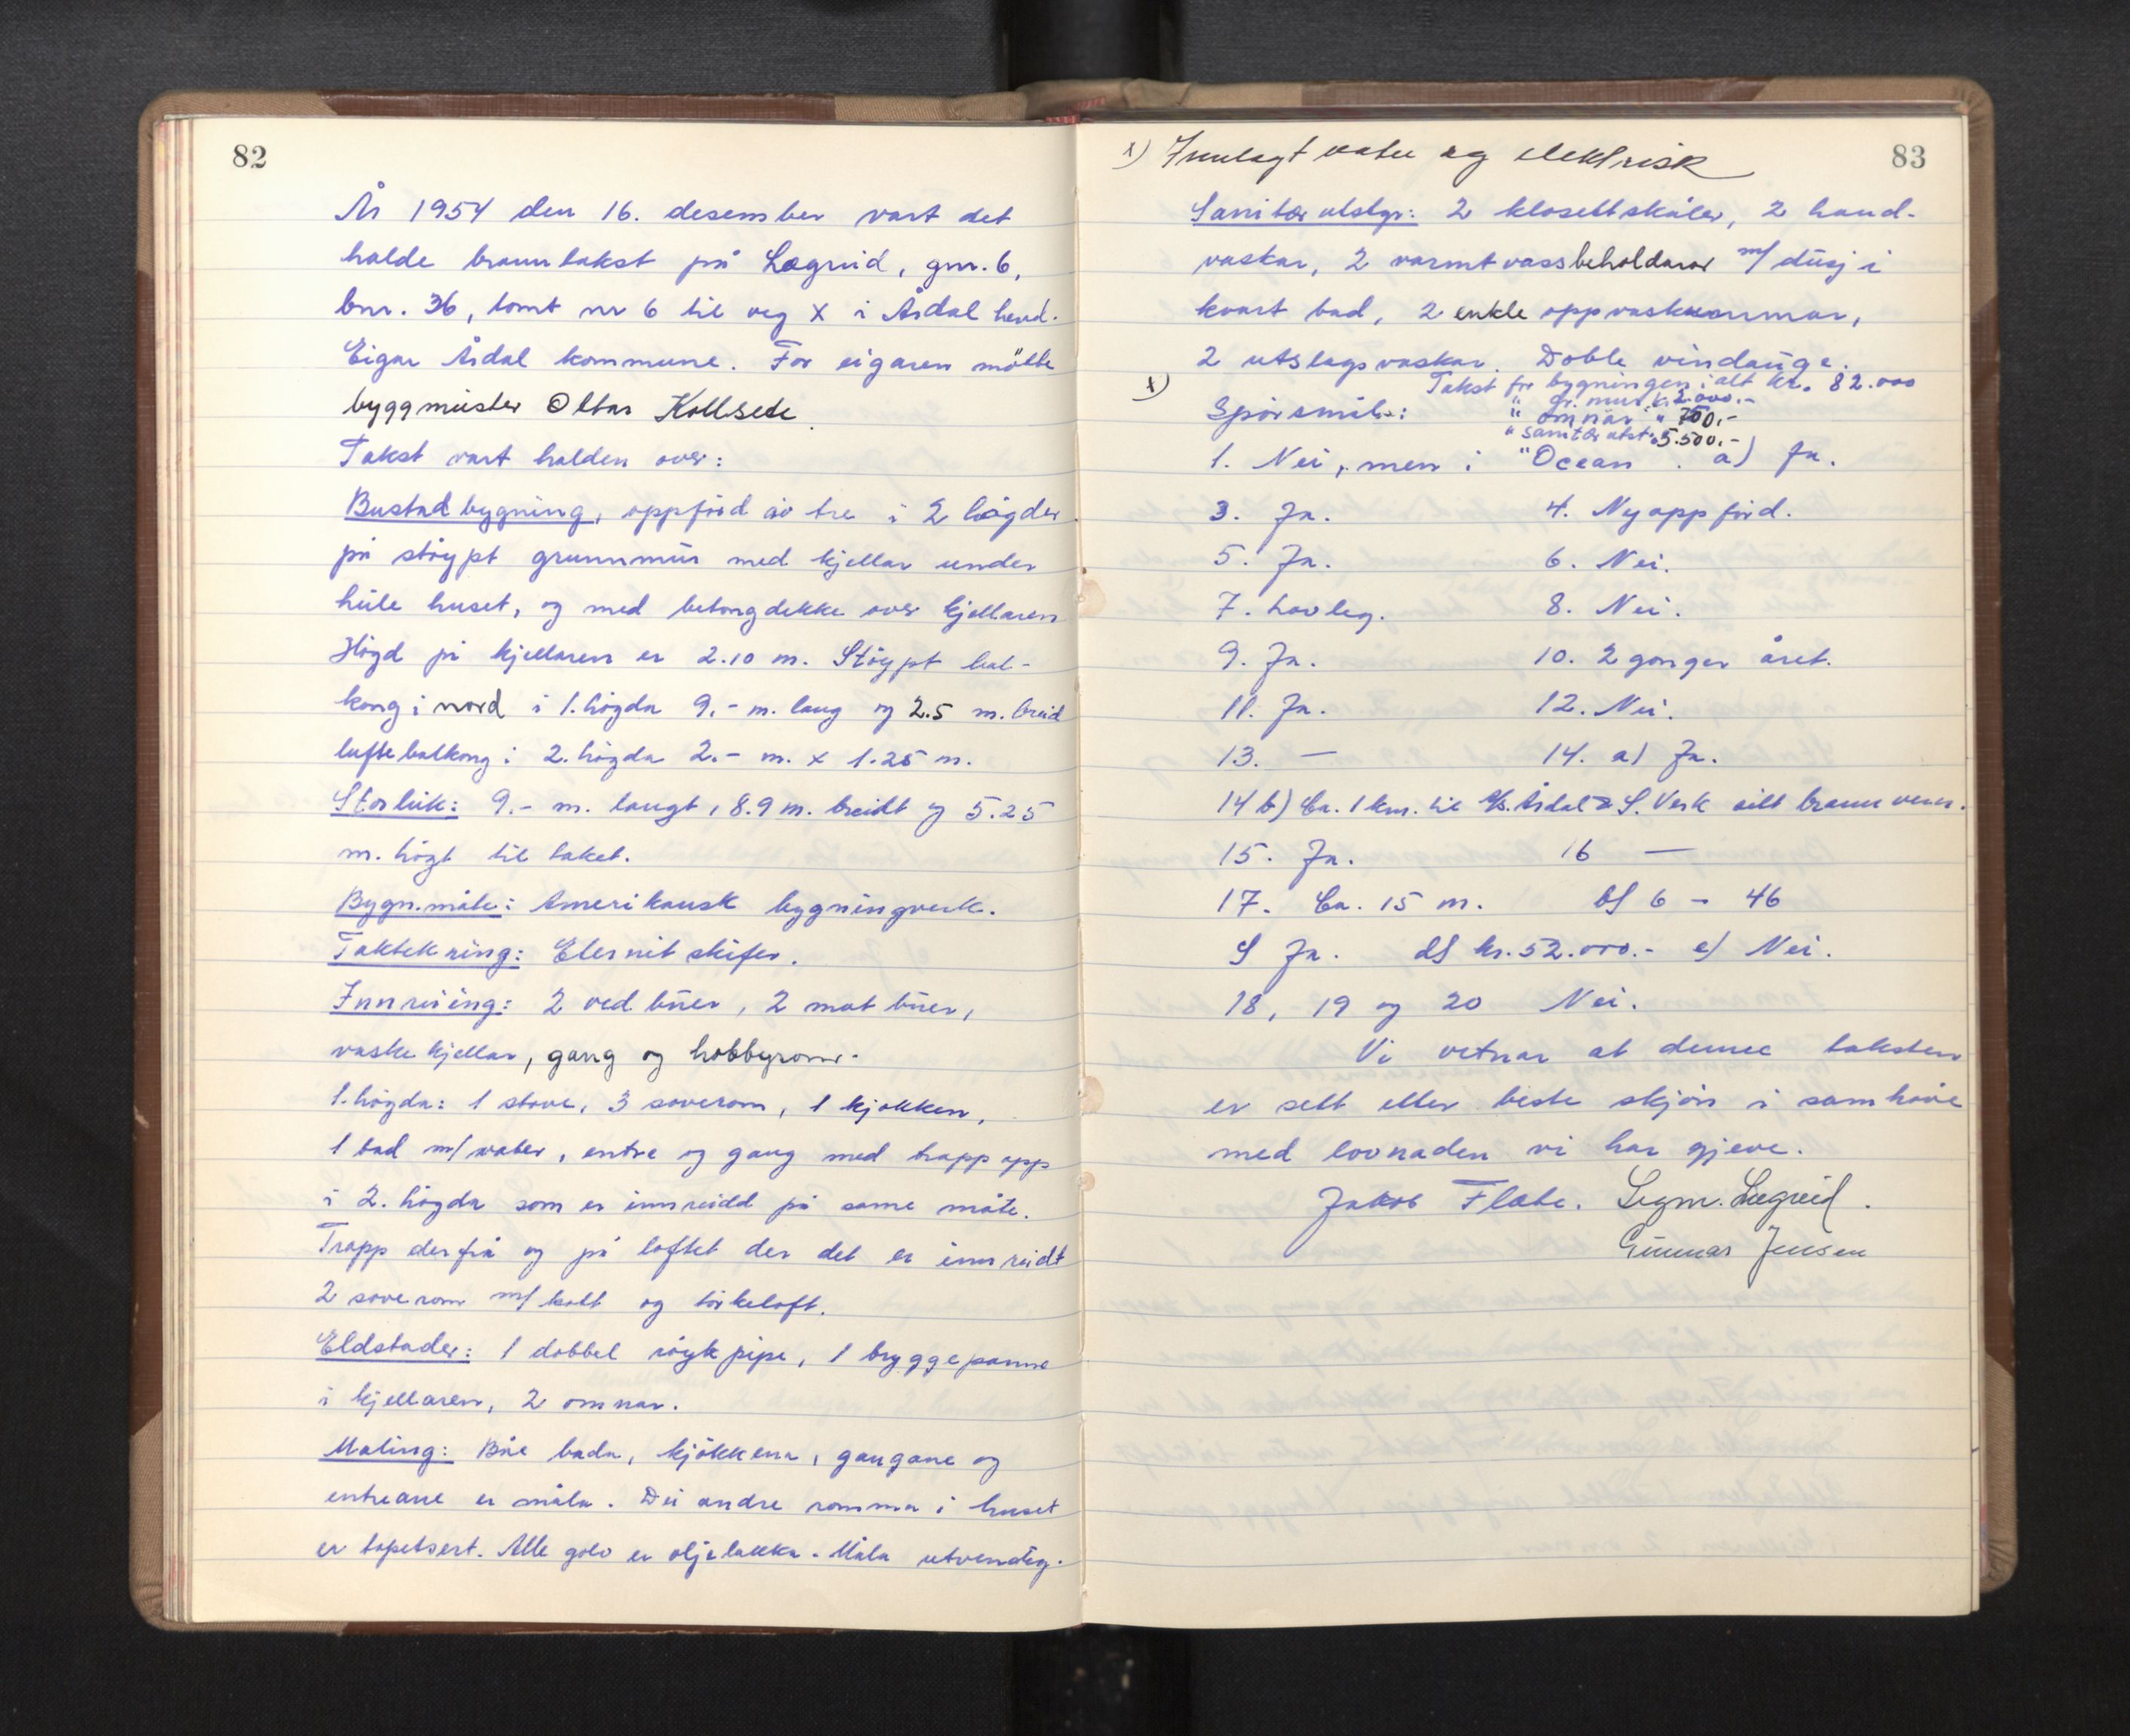 82
År 1954 den 16. desember vart det
halde branntakst på Lægreid, gnr. 6,
bnr. 36, tomt nr 6 til veg X i Årdal herd.
Eigar Årdal kommune. For eigaren møtte
byggmeister Oltar Kollsete.
Takst vart halden over:
Bustadbygning, oppførd av tre i 2 høgder
på støypt grunnmur med kjellar under
heile huset, og med betongdekke over kjellaren
Høgd på kjellaren er 2.10 m. Støypt bal-
kong i nord i 1. høgda 9.- m. lang og 2.5 m. breid
luftebalkong i 2. høgda 2.- m. x 1.25 m.
Storleik: 9.- m. langt, 8.9 m. breidt og 5.25
m. høgt til taket.
Bygn.måte: Amerikansk bygningverk.
Taktekning: Eternitskifer.
Innreiing: 2 vedbuer, 2 matbuer,
vaskekjellar, gang og hobbyrom.
1. høgda: 1 stove, 3 soverom, 1 kjøkken,
1 bad m/vater, entre og gang med trapp opp
i 2. høgda som er innreidd på same måte.
Trapp derfrå og på loftet der det er innreidt
2 soverom m/kott og tørkeloft.
Eldstader: 1 dobbel røykpipe, 1 bryggepanne
i kjellaren, 2 omnar.
Maling: Båe bada, kjøkkena, gangane og
entreane er måla. Dei andre romma i huset
er tapetsert. Alle golv er oljelakka. Måla utvendig.
83
x) Innlagt vatn og elektrisk
Sanitærutstyr: 2 klosettskåler, 2 hand-
vaskar, 2 varmtvassbeholdarar m/dusj i
kvart bad, 2 enkle oppvaskkummar,
2 utslagsvaskar. Doble vindauge.
x) Takst for bygningen i alt kr. 82.000
" gr. mur k. 2.000.-
Spørsmål: " omnar " 700,-
" sanitær utst. 5.500.-
1. Nei, men i "Ocean". a) Ja.
3. Ja. 4. Nyoppførd.
5. Ja. 6. Nei.
7. Lovleg. 8. Nei.
9. Ja. 10. 2 gonger året.
11. Ja. 12. Nei.
13. — 14. a) Ja.
14 b) Ca. 1 km. til A/S. Årdal & S. Verk sitt brannvern.
15. Ja. 16 —
17. Ca. 15 m. b) 6 - 46
c) Ja. d) kr. 52.000.- e) Nei.
18, 19 og 20 Nei.
Vi vitnar at denne taksten
er sett etter beste skjøn i samhøve
med lovnaden vi har gjeve.
Jakob Flate. Sigm. Lægreid.
Gunnar Jensen